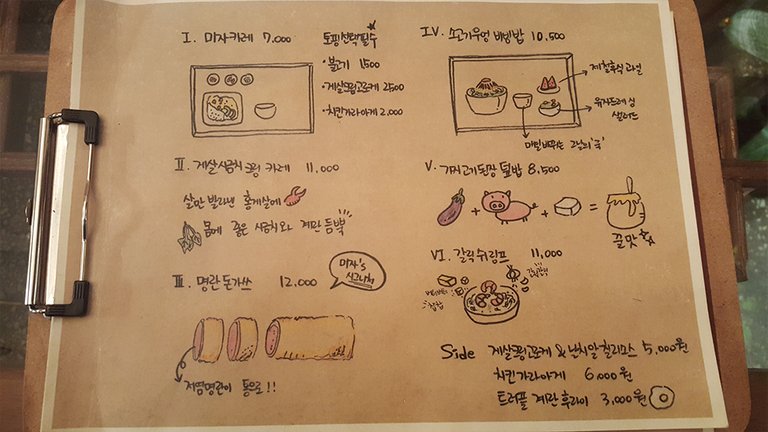 I. 미자카레 7,000
토핑선택필수
· 불고기 1500
· 게살크림고로케 2500
· 치킨가라아게 2,000
II. 게살시금치크림 카레 11,000
살만 발라낸 홍게살에
몸에 좋은 시금치와 계란 듬뿍
III. 명란 돈가쓰 12,000
미자's
시그니처
저염명란이 통으로!!
IV. 소고기우엉 비빔밥 10,500
제철후식 과일
유자드레싱
샐러드
매일 바뀌는 그날의 '국'
V. 가지고기된장 덮밥 8,500
+ + =
꿀맛
VI. 갈릭쉬림프 11,000
Side 게살크림고로케 & 난치알 컬리소스 5,000원
치킨가라아게 6,000원
트러플 계란후라이 3,000원